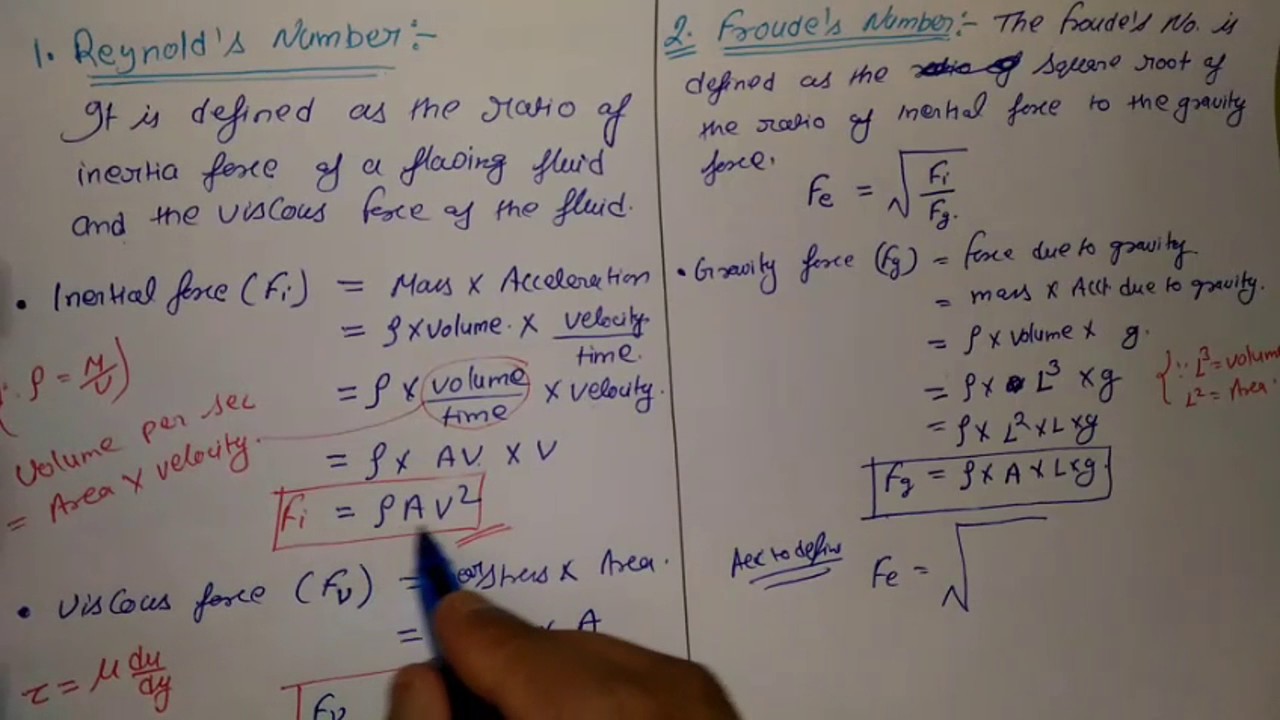 1. Reynold's Number:-
It is defined as the ratio of
inertia force of a flowing fluid
and the viscous force of the fluid.
• Inertial force (Fi) = Mass × Acceleration
= ρ × volume. × velocity/time.
= ρ × volume/time × velocity.
= ρ × AV. × V
Fi = ρAV²
∵ ρ = M/V)
Volume per sec
= Area × velocity.
• Viscous force (Fν) = stress × Area.
= × A
τ = μ du/dy
Fν
2. Froude's Number:- The froude's No. is
defined as the square root of
the ratio of inertial force to the gravity
force.
Fe = √Fi/Fg.
• Gravity force (Fg) = force due to gravity.
= mass × Acct due to gravity.
= ρ × volume × g.
= ρ × L³ × g
= ρ × L² × L × g
Fg = ρ × A × L × g
{∵ L³ = volum
L² = Area.
Acc to define
Fe = √